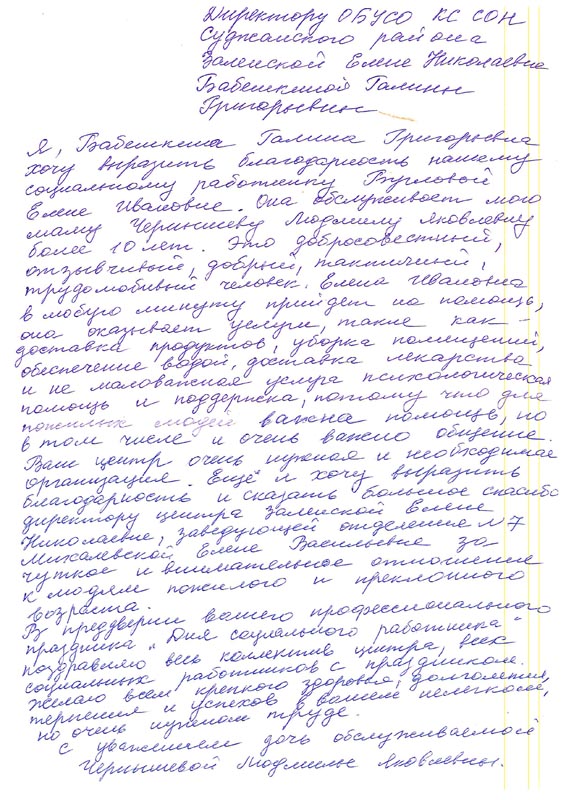 Директору ОБУСО КС СОН
Суджанского района
Заленской Елене Николаевне
Бабешкиной Галины
Григорьевны
Я, Бабешкина Галина Григорьевна
хочу выразить благодарность нашему
социальному работнику
Елене Ивановне. Она обслуживает мою
маму Чернышеву Людмилу Яковлевну
более 10 лет. Это добросовестный,
отзывчивый, добрый, тактичный,
трудолюбивый человек. Елена Ивановна
в любую минуту прийдет на помощь,
она оказывает услуги, такие как -
доставка продуктов, уборка помещений,
обеспечение водой, доставка лекарства
и не маловажная услуга психологическая
помощь и поддержка, потому что для
пожилых людей важна помощь, но
в том числе и очень важно общение.
Ваш центр очень нужная и необходимая
организация. Ещё я хочу выразить
благодарность и сказать большое спасибо
директору центра Заленской Елене
Николаевне, заведующей отделением №7
Михалевской Елене Васильевне за
чуткое и внимательное отношение
к людям пожилого и преклонного
возраста.
В преддверии вашего профессионального
праздника "Дня социального работника"
поздравляю весь коллектив центра, всех
социальных работников с праздником.
Желаю всем крепкого здоровья, долголетия,
терпения и успехов в вашем нелегком,
но очень нужном труде.
С уважением дочь обслуживаемой
Чернышевой Людмилы Яковлевны.